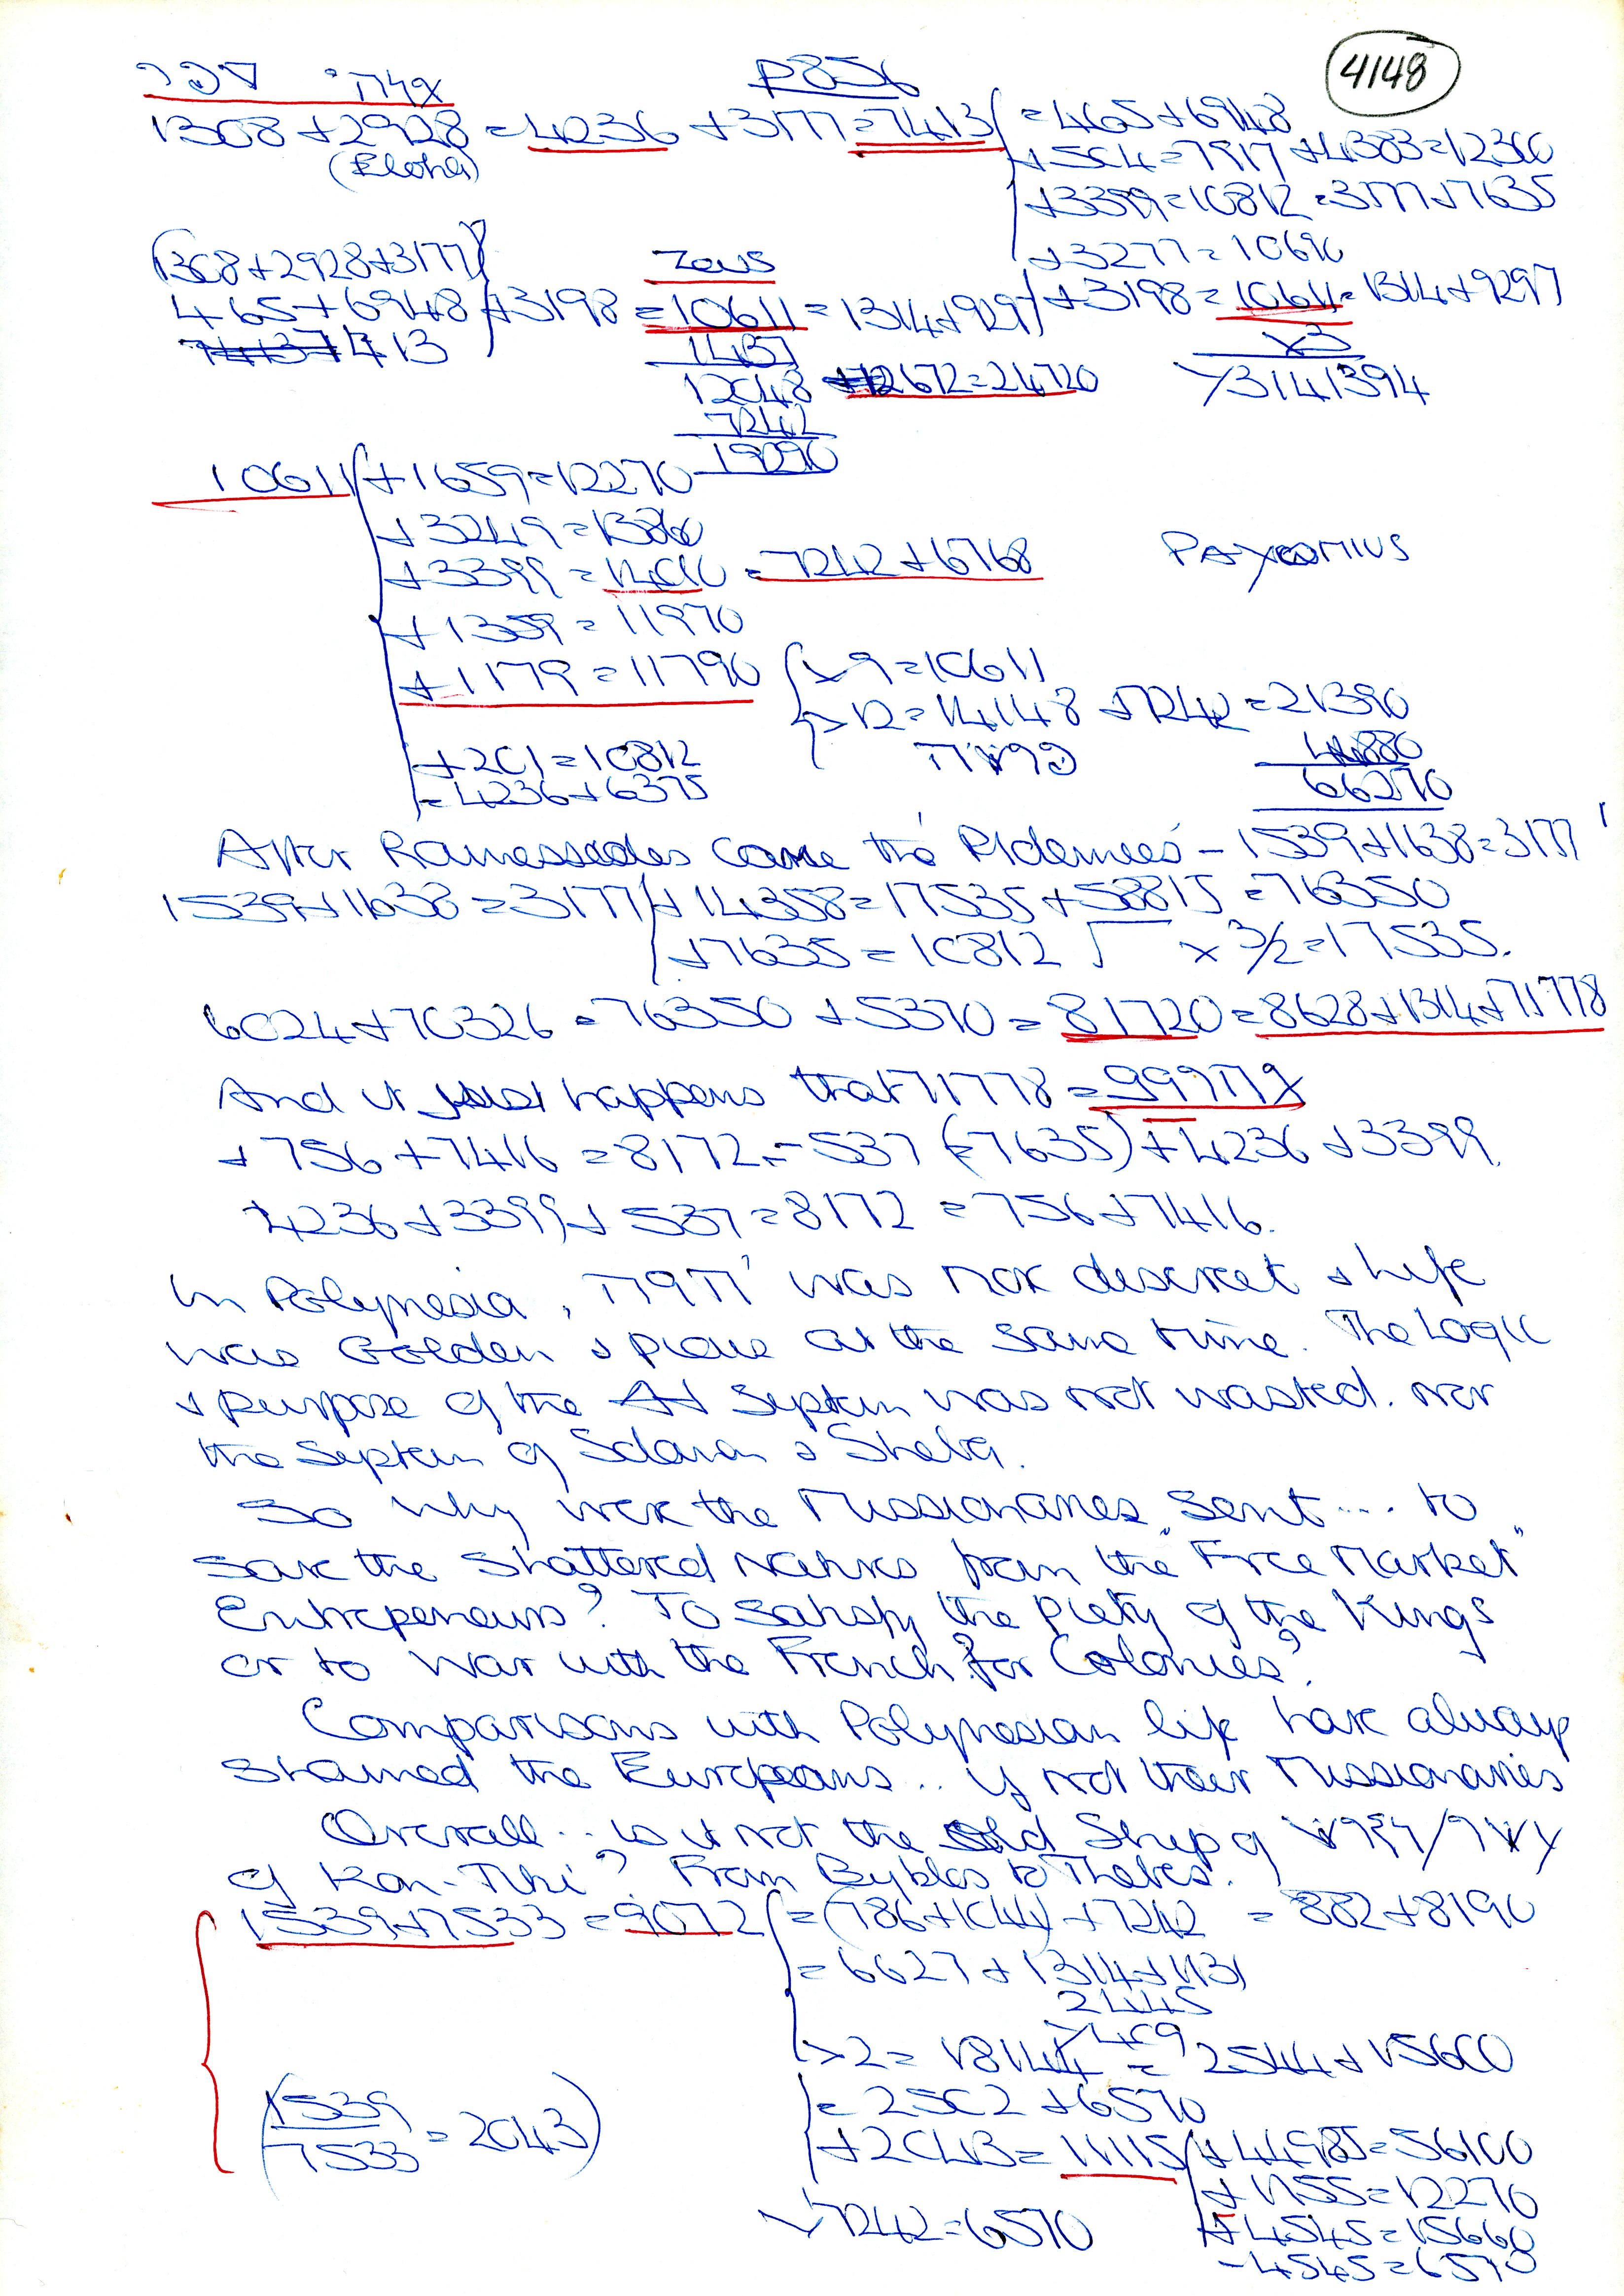 P856
4148
1308 + 2928 = 4236 + 3177 = 7413 = 465 + 6948
(Eloha)
+ 504 = 7917 + 4383 = 12300
+ 3399 = 10812 = 3177 + 7635
+ 3277 = 10690
(1308 + 2928 + 3177)
Zeus
465 + 6948 + 3198 = 10611 = 1314 + 9297 + 3198 = 10611 = 1314 + 9297
7413
1437
x3
12048 + 12672 = 24720
> 3141394
7242
19290
10611 + 1659 = 12270
+ 3249 = 13860
+ 3399 = 14010 = 7242 + 6768
PAYCOMIUS
+ 1359 = 11970
+ 1179 = 11790 x 9 = 10611
> 12 = 14148 + 7242 = 21390
44880
66270
+ 201 = 10812
= 4236 + 6375
After Ramessides came the 'Ptolemies' - 1539 + 1638 = 3177
1539 + 1638 = 3177 + 14358 = 17535 + 58815 = 76350
+ 7635 = 10812 x 3/2 = 17535.
6024 + 70326 = 76350 + 5370 = 81720 = 8628 + 1314 + 71778
And it just happens that 71778 =
+ 756 + 7416 = 8172 = - 537 (= 7635) + 4236 + 3399.
4236 + 3399 + 537 = 8172 = 756 + 7416.
In Polynesia, was not discreet & life
was Golden & pious at the same time. The Logic
& purpose of the System was not wasted. nor
the System of Solomon & Sheba.
So why were the Missionaries sent ... to
save the shattered natives from the "Free Market"
Entrepeneurs? To satisfy the piety of the Kings
or to war with the French for Colonies?
Comparisons with Polynesian life have always
shamed the Europeans .. if not their Missionaries
Overall ... is it not the Ship of
of Kon-Tiki? From Byblos to Thebes.
1539 + 7533 = 9072 = (786 + 1044) + 7242 = 882 + 8190
= 6627 + 1314 + 1131
2445
> 409
> 2 = 18144 = 2544 + 15600
= 2502 + 6570
(1539/7533 = 2043)
+ 2043 = 11115 + 44985 = 56100
+ 1155 = 12270
+ 4545 = 15660
7242 = 6570
- 4545 = 6570